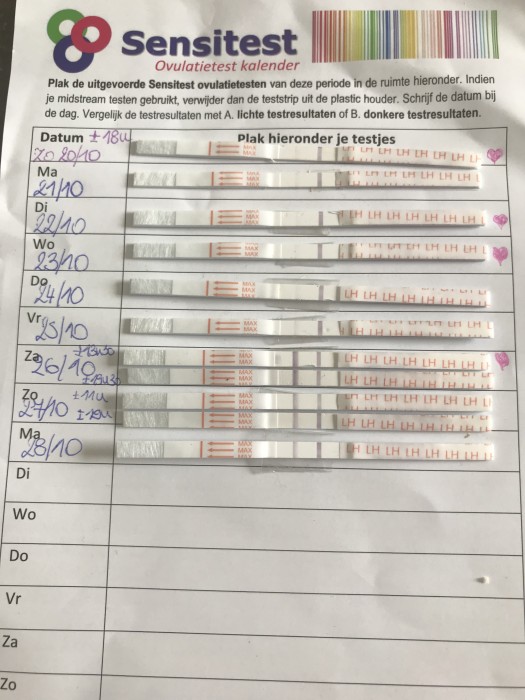 Sensitest
Ovulatietest kalender
Plak de uitgevoerde Sensitest ovulatietesten van deze periode in de ruimte hieronder. Indien
je midstream testen gebruikt, verwijder dan de teststrip uit de plastic houder. Schrijf de datum bij
de dag. Vergelijk de testresultaten met A. lichte testresultaten of B. donkere testresultaten.
Datum ± 18u Plak hieronder je testjes
Zo 20/10 MAX MAX LH LH LH LH LH LH
Ma
21/10 MAX MAX LH LH LH LH LH LH
Di
22/10 MAX MAX LH LH LH LH LH LH
Wo
23/10 MAX MAX LH LH LH LH LH LH
Do
24/10 MAX MAX LH LH LH LH LH LH
Vr
25/10 MAX LH LH LH LH LH LH
Za ± 13u30
26/10 MAX MAX LH LH LH LH LH LH
± 19u30 MAX MAX LH LH LH LH LH LH
Zo ± 11u MAX MAX LH LH LH LH LH LH
27/10 ± 19u MAX MAX LH LH LH LH LH LH
Ma
28/10 MAX MAX LH LH LH LH LH LH
Di
Wo
Do
Vr
Za
Zo